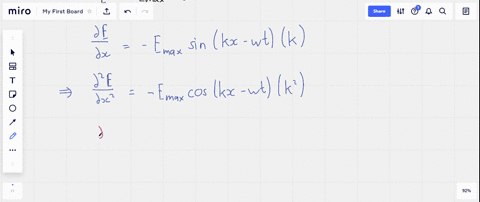 miro My First Board Share
∂E/∂x = -E_max sin (kx - wt) (k)
⇒ ∂²E/∂x² = -E_max cos (kx - wt) (k²)
∂
92%